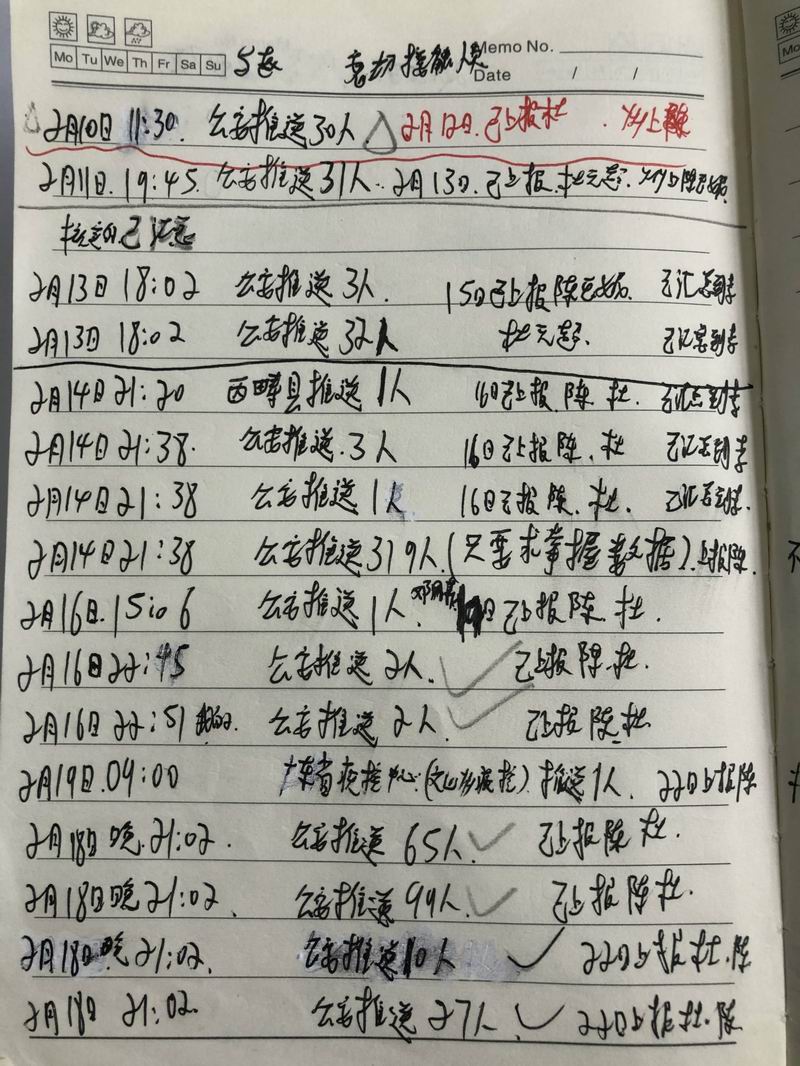 Mo Tu We Th Fr Sa Su
密切接触人员
Memo No.
Date / /
2月10日 11:30. 公安推送30人 2月12日.已上报杜
2月11日.19:45. 公安推送31人. 2月13日.已上报.杜
2月13日 18:02 公安推送3人. 15日已上报陈 已汇总到李
2月13日 18:02 公安推送32人 杜 已汇总到李
2月14日 21:20 西畴县推送1人 16日已上报陈.杜. 已汇总到李
2月14日 21:38. 公安推送.3人 16日已上报陈.杜 已汇总到李
2月14日 21:38 公安推送1人 16日已报陈.杜. 已汇总到李.
2月14日 21:38 公安推送319人.(只要求掌握数据).上报陈.
2月16日.15:06 公安推送1人. 已上报陈.杜.
2月16日 22:45 公安推送2人. 已上报陈.杜.
2月16日 22:51 公安推送2人 已上报陈.杜
2月19日.09:00 推送1人. 22日上报陈
2月18日晚.21:02. 公安推送65人 已上报陈杜.
2月18日晚21:02. 公安推送99人 已上报陈杜.
2月18日晚21:02. 公安推送10人 22日上报杜.陈
2月18日 21:02. 公安推送27人. 22日上报杜.陈